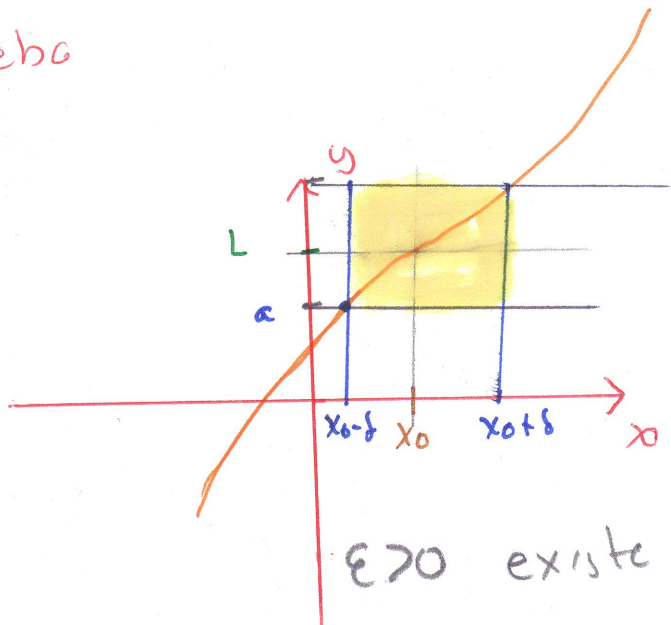 eba
y
L
a
x₀-δ x₀ x₀+δ
x
ε>0 existe